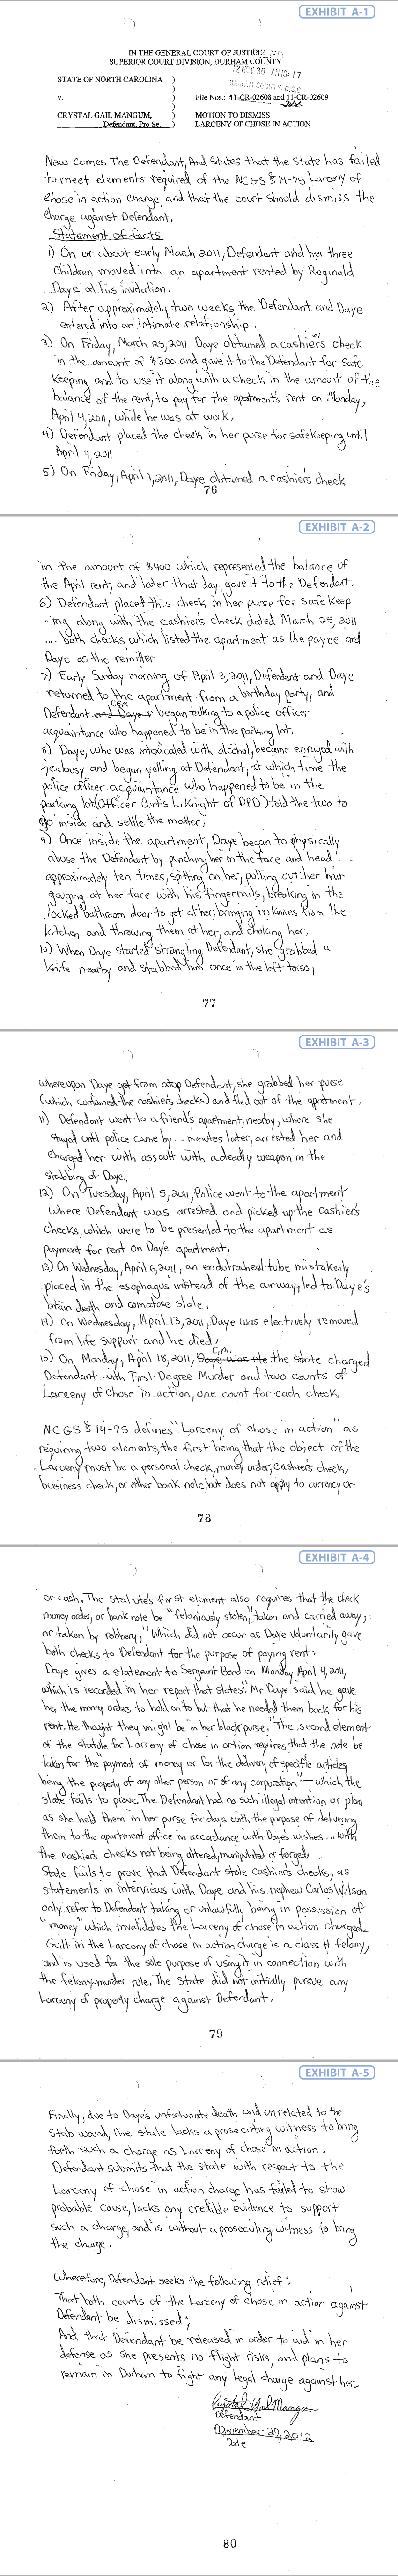 EXHIBIT A-1
IN THE GENERAL COURT OF JUSTICE
SUPERIOR COURT DIVISION, DURHAM COUNTY
12 NOV 30 AM 10:17
DURHAM COUNTY, C.S.C.
STATE OF NORTH CAROLINA )
)
v. ) File Nos.: 11-CR-02608 and 11-CR-02609
)
CRYSTAL GAIL MANGUM, ) MOTION TO DISMISS
Defendant, Pro Se. ) LARCENY OF CHOSE IN ACTION
Now comes The Defendant, And States that the state has failed
to meet elements required of the NCGS § 14-75 Larceny of
chose in action charge, and that the court should dismiss the
charge against Defendant.
Statement of facts
1) On or about early March 2011, Defendant and her three
children moved into an apartment rented by Reginald
Daye at his invitation.
2) After approximately two weeks, the Defendant and Daye
entered into an intimate relationship.
3) On Friday, March 25, 2011 Daye obtained a cashier's check
in the amount of $300 and gave it to the Defendant for safe
keeping and to use it along with a check in the amount of the
balance of the rent, to pay for the apatment's rent on Monday,
April 4, 2011, while he was at work.
4) Defendant placed the check in her purse for safekeeping until
April 4, 2011
5) On Friday, April 1, 2011, Daye obtained a cashier's check
76
EXHIBIT A-2
in the amount of $400 which represented the balance of
the April rent, and later that day, gave it to the Defendant.
6) Defendant placed this check in her purse for safe keep
-ing along with the cashier's check dated March 25, 2011
.... both checks which listed the apartment as the payee and
Daye as the remitter
7) Early Sunday morning of April 3, 2011, Defendant and Daye
returned to the apartment from a birthday party, and
CGM
Defendant and Daye began talking to a police officer
acquaintance who happened to be in the parking lot.
8) Daye, who was intoxicated with alcohol, became enraged with
jealousy and began yelling at Defendant, at which time the
police officer acquaintance who happened to be in the
parking lot (Officer Curtis L. Knight of DPD) told the two to
go inside and settle the matter.
9) Once inside the apartment, Daye began to physically
abuse the Defendant by punching her in the face and head
approximately ten times, spitting on her, pulling out her hair
gouging at her face with his fingernails, breaking in the
locked bathroom door to get at her, bringing in knives from the
kitchen and throwing them at her, and choking her.
10) When Daye started strangling Defendant, she grabbed a
knife nearby and stabbed him once in the left torso,
77
EXHIBIT A-3
whereupon Daye got from atop Defendant, she grabbed her purse
(which contained the cashier's checks) and fled out of the apartment.
11) Defendant went to a friend's apartment, nearby, where she
stayed until police came by — minutes later, arrested her and
charged her with assault with a deadly weapon in the
stabbing of Daye.
12) On Tuesday, April 5, 2011, Police went to the apartment
where Defendant was arrested and picked up the Cashier's
Checks, which were to be presented to the apartment as
payment for rent on Daye' apartment.
13) On Wednesday, April 6, 2011, an endotracheal tube mistakenly
placed in the esophagus instead of the airway, led to Daye's
brain death and comatose state.
14) On Wednesday, April 13, 2011, Daye was electively removed
from life support and he died.
C.M.
15) On Monday, April 18, 2011, Daye was ele the state charged
Defendant with First Degree Murder and two counts of
Larceny of Chose in action, one count for each check.
NCGS § 14-75 defines "Larceny of chose in action" as
requiring two elements, the first being that the object of the
Larceny must be a personal check, money order, cashier's check,
business check, or other bank note, but does not apply to currency or
78
EXHIBIT A-4
or cash. The statute's first element also requires that the check
money order, or bank note be "feloniously stolen, taken and carried away,
or taken by robbery," Which did not occur as Daye voluntarily gave
both checks to Defendant for the purpose of paying rent.
Daye gives a statement to Sergeant Bond on Monday April 4, 2011,
which is recorded in her report that states: "Mr Daye said he gave
her the money orders to hold on to but that he needed them back for his
rent. He thought they might be in her black purse." The second element
of the statute for Larceny of chose in action requires that the note be
taken for the "payment of money or for the delivery of specific articles
being the property of any other person or of any corporation" — which the
state fails to prove. The Defendant had no such illegal intention or plan
as she held them in her purse for days with the purpose of delivering
them to the apartment office in accordance with Daye's wishes... with
the cashier's checks not being altered, manipulated or forged.
State fails to prove that Defendant stole Cashier's checks, as
statements in interviews with Daye and his nephew Carlos Wilson
only refer to Defendant taking or unlawfully being in possession of
"money" which invalidates the Larceny of chose in action charged.
Guilt in the Larceny of chose in action charge is a class H felony,
and is used for the sole purpose of using it in connection with
the felony-murder rule. The State did not initially pursue any
Larceny of property charge against Defendant.
79
EXHIBIT A-5
Finally, due to Daye's unfortunate death and unrelated to the
stab wound, the state lacks a prosecuting witness to bring
forth such a charge as Larceny of chose in action.
Defendant submits that the state with respect to the
Larceny of chose in action charge has failed to show
probable cause, lacks any credible evidence to support
such a charge, and is without a prosecuting witness to bring
the charge.
Wherefore, Defendant seeks the following relief:
That both counts of the Larceny of chose in action against
Defendant be dismissed;
And that Defendant be released in order to aid in her
defense as she presents no flight risks, and plans to
remain in Durham to fight any legal charge against her.
Crystal Gail Mangum
Defendant
November 27, 2012
Date
80